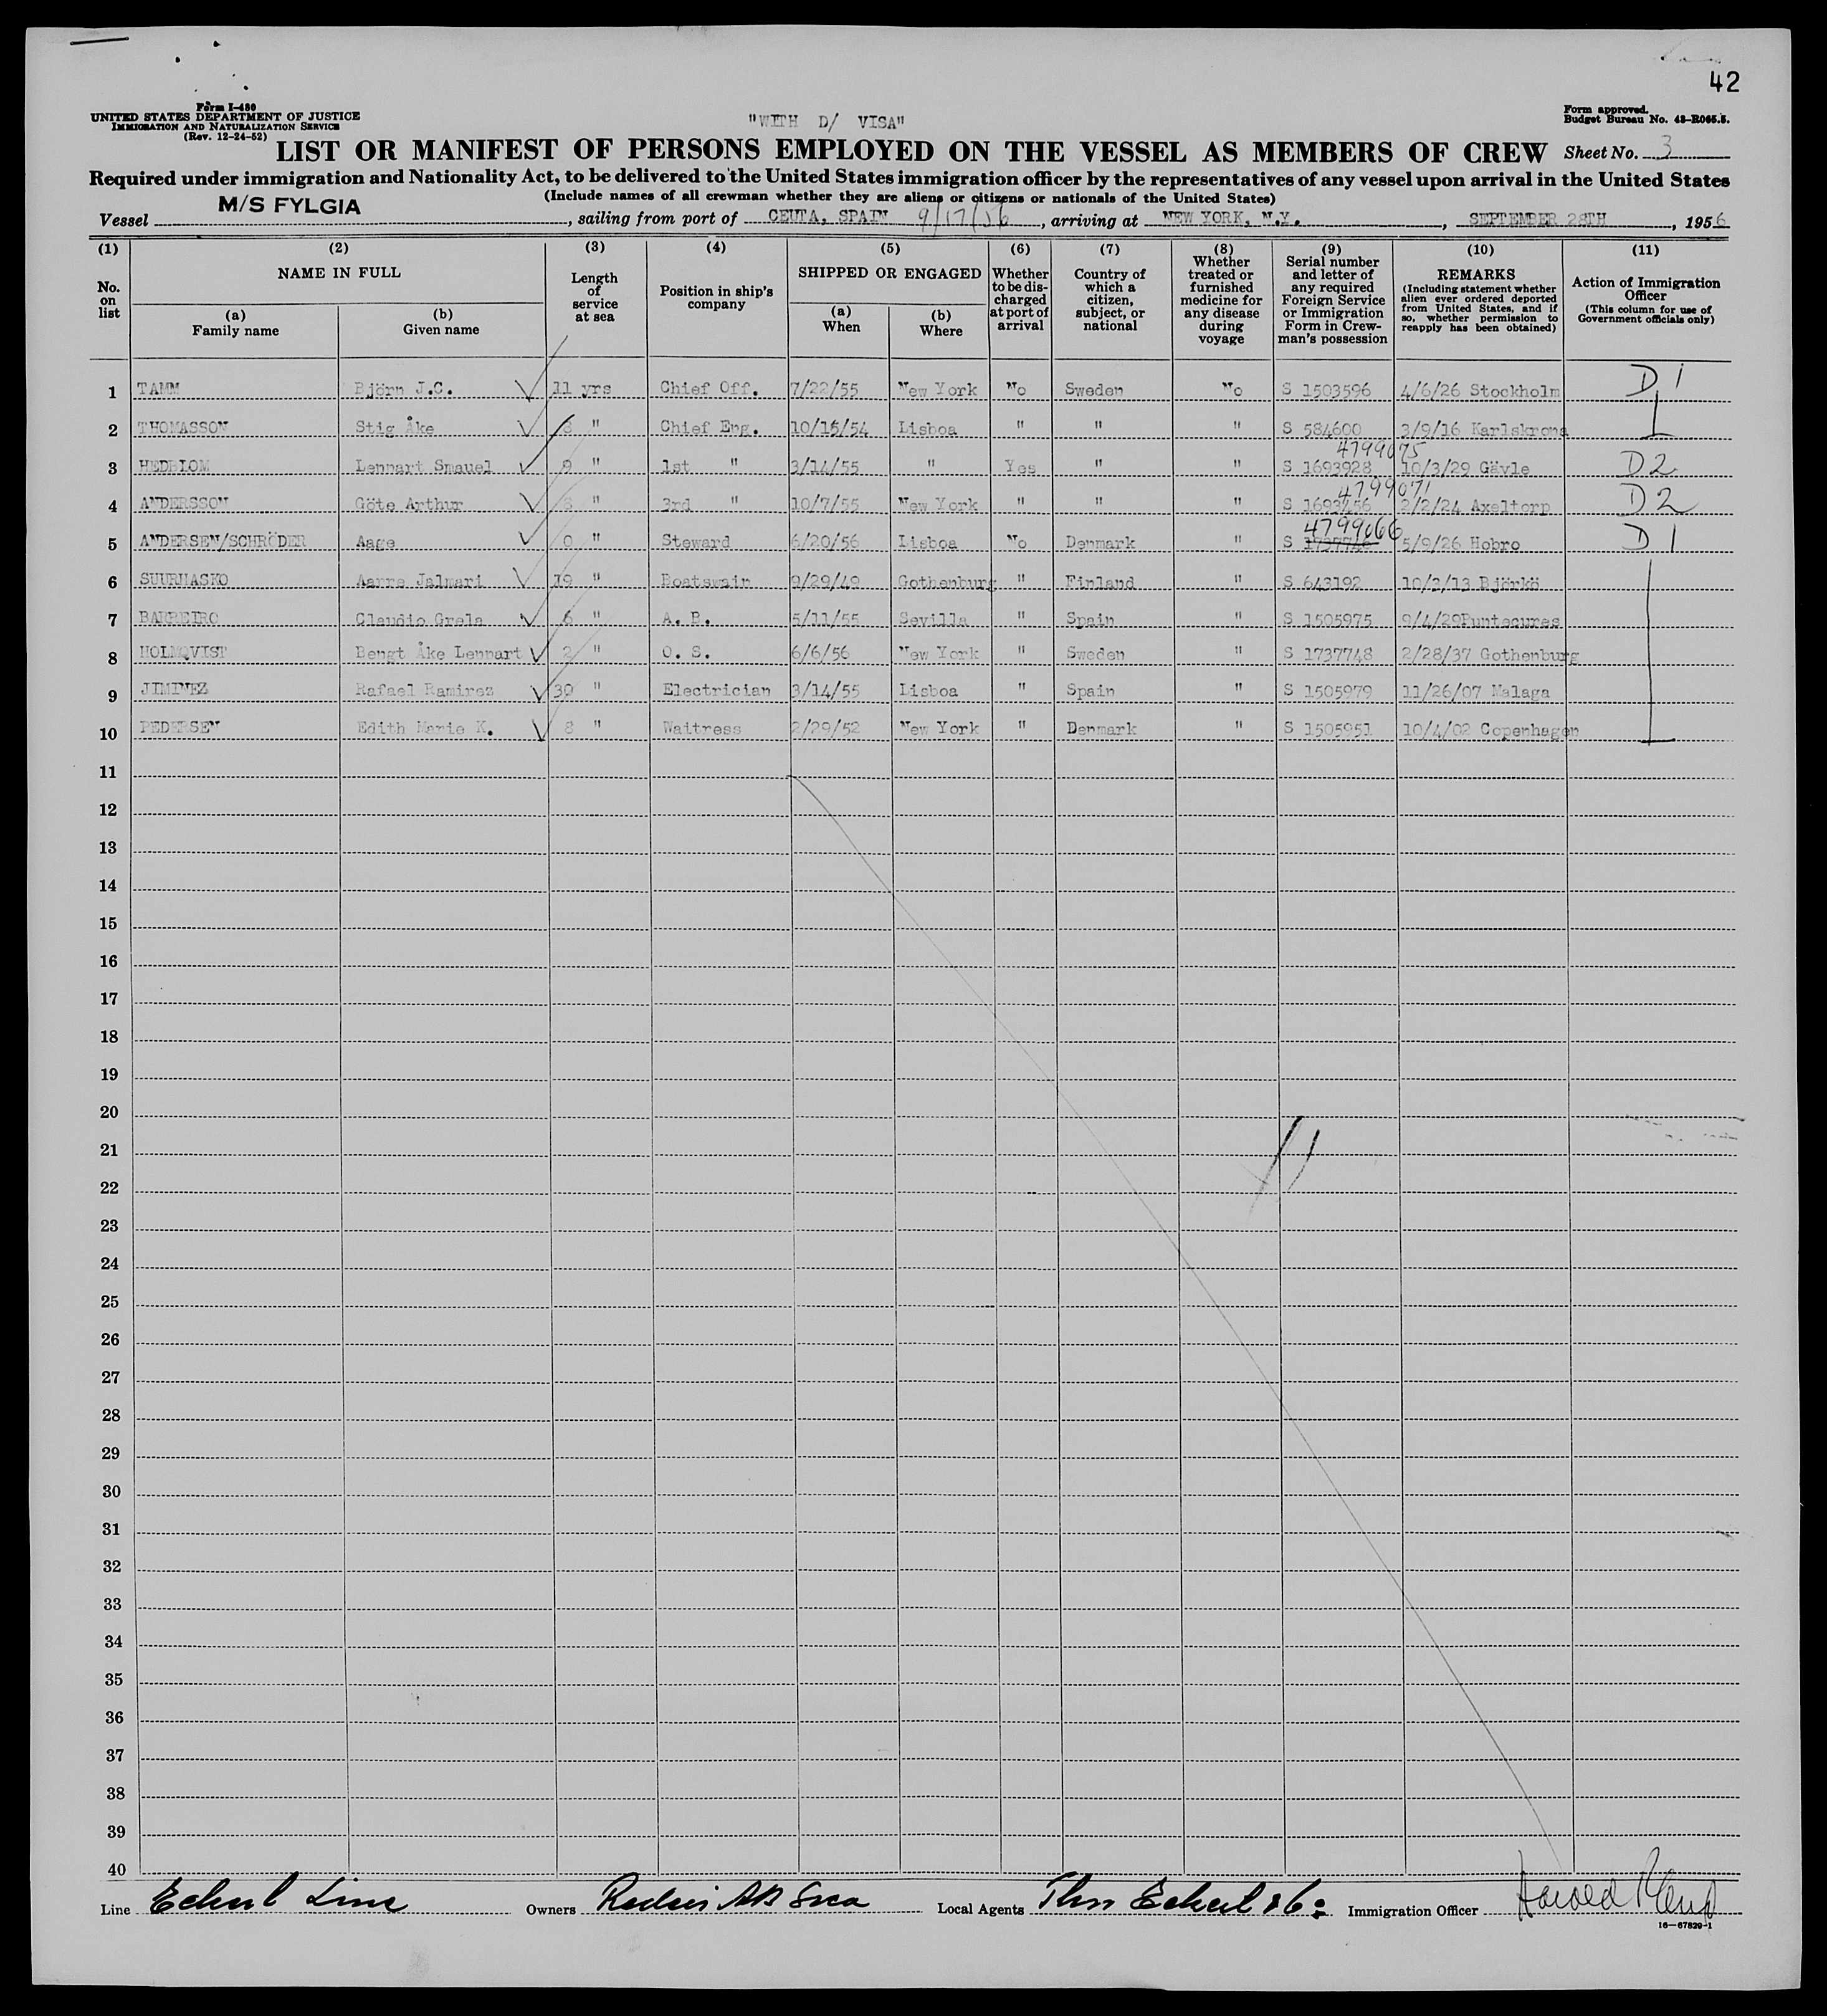 42
Form I-480
UNITED STATES DEPARTMENT OF JUSTICE
IMMIGRATION AND NATURALIZATION SERVICE
(Rev. 12-24-52)
"WITH D/ VISA"
Form approved.
Budget Bureau No. 43-R065.5.
LIST OR MANIFEST OF PERSONS EMPLOYED ON THE VESSEL AS MEMBERS OF CREW Sheet No. 3
Required under immigration and Nationality Act, to be delivered to the United States immigration officer by the representatives of any vessel upon arrival in the United States
(Include names of all crewman whether they are aliens or citizens or nationals of the United States)
Vessel M/S FYLGIA, sailing from port of CEUTA, SPAIN 9/17/56, arriving at NEW YORK, N.Y., SEPTEMBER 28TH, 1956
(1) (2) (3) (4) (5) (6) (7) (8) (9) (10) (11)
No. on list
NAME IN FULL
(a) Family name
(b) Given name
Length of service at sea
Position in ship's company
SHIPPED OR ENGAGED
(a) When
(b) Where
Whether to be discharged at port of arrival
Country of which a citizen, subject, or national
Whether treated or furnished medicine for any disease during voyage
Serial number and letter of any required Foreign Service or Immigration Form in Crewman's possession
REMARKS
(Including statement whether alien ever ordered deported from United States, and if so, whether permission to reapply has been obtained)
Action of Immigration Officer
(This column for use of Government officials only)
1 TAMM Björn J.C. 11 yrs Chief Off. 7/22/55 New York No Sweden No S 1503596 4/6/26 Stockholm D 1
2 THOMASSON Stig Åke " Chief Eng. 10/15/54 Lisboa " " " S 584600 3/9/16 Karlskrona
4799075
3 HEDBLOM Lennart Smauel 9 " 1st " 3/14/55 " Yes " " S 1693928 10/3/29 Gävle D 2
4799071
4 ANDERSSON Göte Arthur 8 " 3rd " 10/7/55 New York " " " S 1693456 2/2/24 Axeltorp D 2
4799066
5 ANDERSEN/SCHRÖDER Aage 0 " Steward 6/20/56 Lisboa No Denmark " S 5/9/26 Hobro D 1
6 SUURHASKO Aarre Jalmari 19 " Boatswain 9/29/49 Gothenburg " Finland " S 643192 10/3/13 Björkö
7 BARREIRO Claudio Grela 6 " A. B. 5/11/55 Sevilla " Spain " S 1505975 9/4/29 Puntecures
8 HOLMQVIST Bengt Åke Lennart 2 " O. S. 6/6/56 New York " Sweden " S 1737748 2/28/37 Gothenburg
9 JIMINEZ Rafael Ramirez 30 " Electrician 3/14/55 Lisboa " Spain " S 1505979 11/26/07 Malaga
10 PEDERSEN Edith Marie K. 8 " Waitress 2/29/52 New York " Denmark " S 1505951 10/4/02 Copenhagen
11
12
13
14
15
16
17
18
19
20
21
22
23
24
25
26
27
28
29
30
31
32
33
34
35
36
37
38
39
40
Line Eckert Line Owners Rederi AB Svea Local Agents Thor Eckert & Co: Immigration Officer Harold
16—67829-1